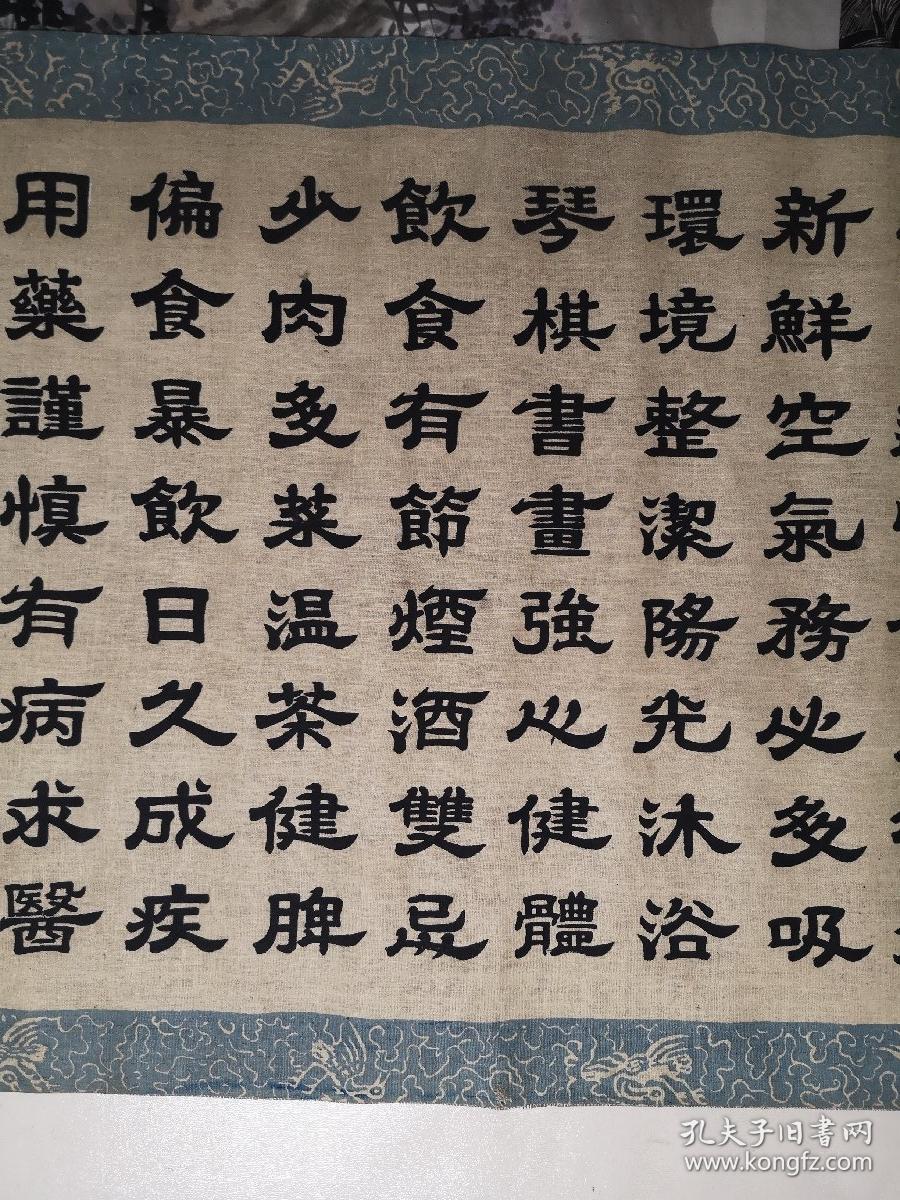 新鮮空氣務必多吸
環境整潔陽光沐浴
琴棋書畫強心健體
飲食有節煙酒雙忌
少肉多菜温茶健脾
偏食暴飲日久成疾
用藥謹慎有病求醫
孔夫子旧書网
www.kongfz.com